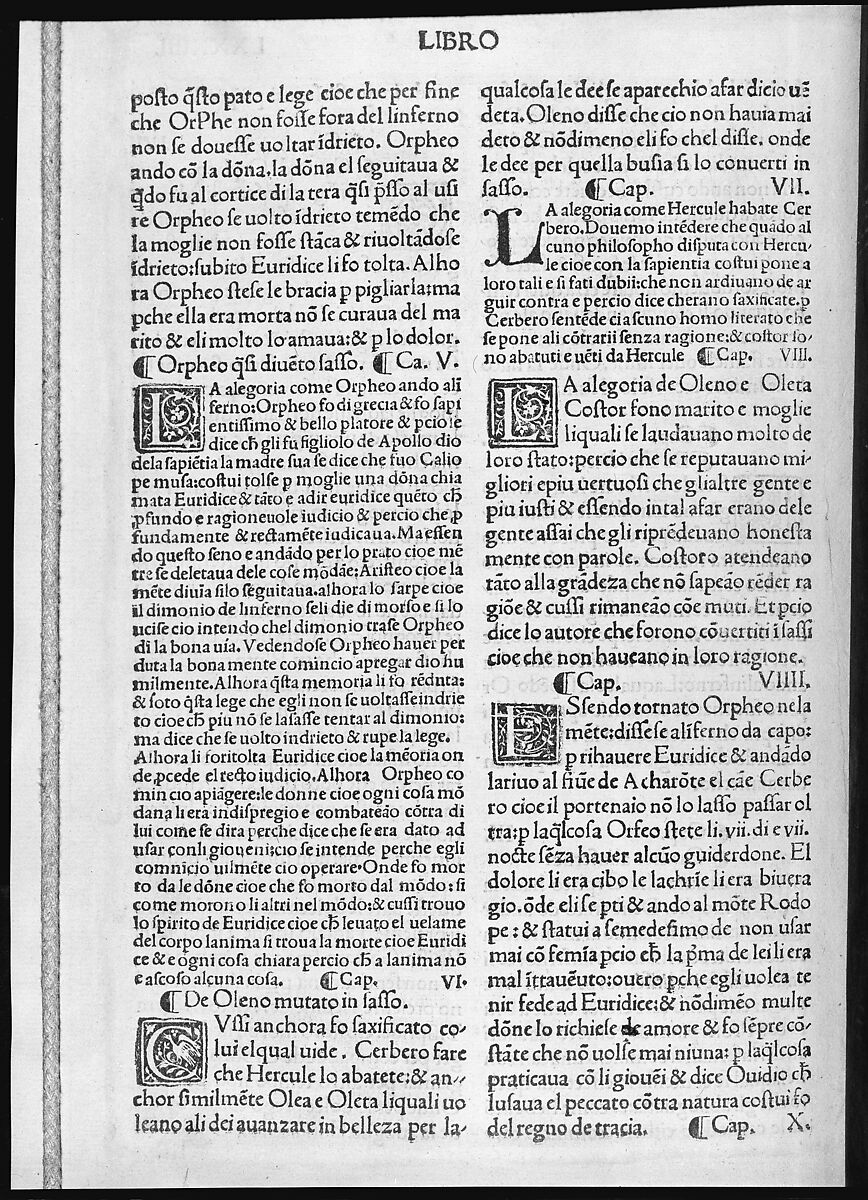 LIBRO
posto q̃sto pato e lege cioe che per fine
che OrPhe non fosse fora del linferno
non se douesse uoltar ĩdrieto. Orpheo
ando cõ la dõna.la dõna el seguitaua &
q̃do fu al cortice di la tera q̃si p̃sso al usi
re Orpheo se uolto ĩdrieto temẽdo che
la moglie non fosse stãca & riuoltãdose
ĩdrieto:subito Euridice li fo tolta. Alho
ra Orpheo stese le bracia ꝑ pigliarla:ma
ꝑche ella era morta nõ se curaua del ma
rito & eli molto lo amaua:& ꝑ lo dolor.
¶ Orpheo q̃si diuẽto sasso. ¶ Ca. V.
LA alegoria come Orpheo ando ali
ferno:Orpheo fo di grecia & fo sapi
entissimo & bello platore & ꝑcio ie
dice ch̃ gli fu figliolo de Apollo dio
dela sapiẽtia la madre sua se dice che fuo Calio
pe musa:costui tolse ꝑ moglie una dõna chia
mata Euridice & tãto e adir euridice quẽto ch̃
ꝓfundo e ragioneuole iudicio & percio che ꝓ
fundamente & rectamẽte iudicaua. Ma essen
do questo seno e andãdo per lo prato cioe mẽ
tre se deletaua dele cose mõdãe:Aristeo cioe la
mẽte diuĩa silo seguitaua.alhora lo sarpe cioe
il dimonio de linferno seli die di morso e si lo
ucise cio intendo chel dimonio trase Orpheo
di la bona uía. Vedendose Orpheo hauer per
duta la bona mente comincio apregar dio hu
milmente. Alhora q̃sta memoria li fo rẽduta:
& soto q̃sta lege che egli non se uoltasse indrie
to cioe ch̃ piu nõ se lasasse tentar al dimonio:
ma dice che se uolto indrieto & rupe la lege.
Alhora li fo ritolta Euridice cioe la mẽoria on
de ꝓcede el recto iudicio. Alhora Orpheo co
min cio apiãgere:le donne cioe ogni cosa mõ
dana li era indispregio e combateão cõtra di
lui come se dira perche dice che se era dato ad
usar con li gioueni:cio se intende perche egli
comnicio uilmẽte cio operare. Onde fo mor
to da le dõne cioe che fo morto dal mõdo: si
come morono li altri nel mõdo:& cussi trouo
lo spirito de Euridice cioe ch̃ leuato el uelame
del corpo lanima si troua la morte cioe Euridi
ce & e ogni cosa chiara percio ch̃ a lanima nõ
e ascoso alcuna cosa. ¶ Cap. VI.
¶ De Oleno mutato in sasso.
CVssi anchora fo saxificato co-
lui elqual uide. Cerbero fare
che Hercule lo abatete:& an-
chor similmẽte Olea e Oleta liquali uo
leano ali dei auanzare in belleza per la-
qualcosa le dee se aparechio afar dicio uẽ
deta. Oleno disse che cio non hauia mai
deto & nõdimeno eli fo chel disse. onde
le dee per quella busia si lo conuerti in
sasso. ¶ Cap. VII.
LA alegoria come Hercule habate Cer
bero. Douemo intẽdere che quãdo al
cuno philosopho disputa con Hercu-
le cioe con la sapientia costui pone a
loro tali e si fati dubii:che non ardiuano de ar
guir contra e percio dice cherano saxificate.ꝑ
Cerbero sentẽde ciascuno homo literato che
se pone ali cõtrarii senza ragione:& costor so-
no abatuti e uẽti da Hercule ¶ Cap. VIII.
LA alegoria de Oleno e Oleta
Costor fono marito e moglie
liquali se laudauano molto de
loro stato:percio che se reputauano mi-
gliori e piu uertuosi che glialtre gente e
piu iusti & essendo in tal afar erano dele
gente assai che gli riprẽdeuano honesta
mente con parole. Costoro atendeano
tãto alla grãdeza che nõ sapeão rẽder ra
giõe & cussi rimaneão cõe muti. Et ꝑcio
dice lo autore che forono cõuertiti ĩ sassi
cioe che non haueano in loro ragione.
¶ Cap. VIIII.
ESsendo tornato Orpheo nela
mẽte:disse se alĩferno da capo:
ꝑ rihauere Euridice & andãdo
lariuo al fiũe de Acharõte el cãe Cerbe
ro cioe il portenaio nõ lo lasso passar ol
tra:ꝑ laq̃lcosa Orfeo stete li. vii. di e vii.
nocte sẽza hauer alcũo guiderdone. El
dolore li era cibo le lachrĩe li era biuera
gio. õde eli se ꝑti & ando al mõte Rodo
pe: & statui a semedesimo de non usar
mai cõ femĩa ꝑcio ch̃ la p̃ma de lei li era
mal ĩtrauẽuto:ouero ꝑche egli uolea te
nir fede ad Euridice:& nõdimẽo multe
dõne lo richiese de amore & fo sẽpre cõ-
stãte che nõ uolse mai niuna: ꝑ laq̃lcosa
praticaua cõ li giouẽi & dice Ouidio ch̃
lusaua el peccato cõtra natura costui fo
del regno de tracia. ¶ Cap. X.